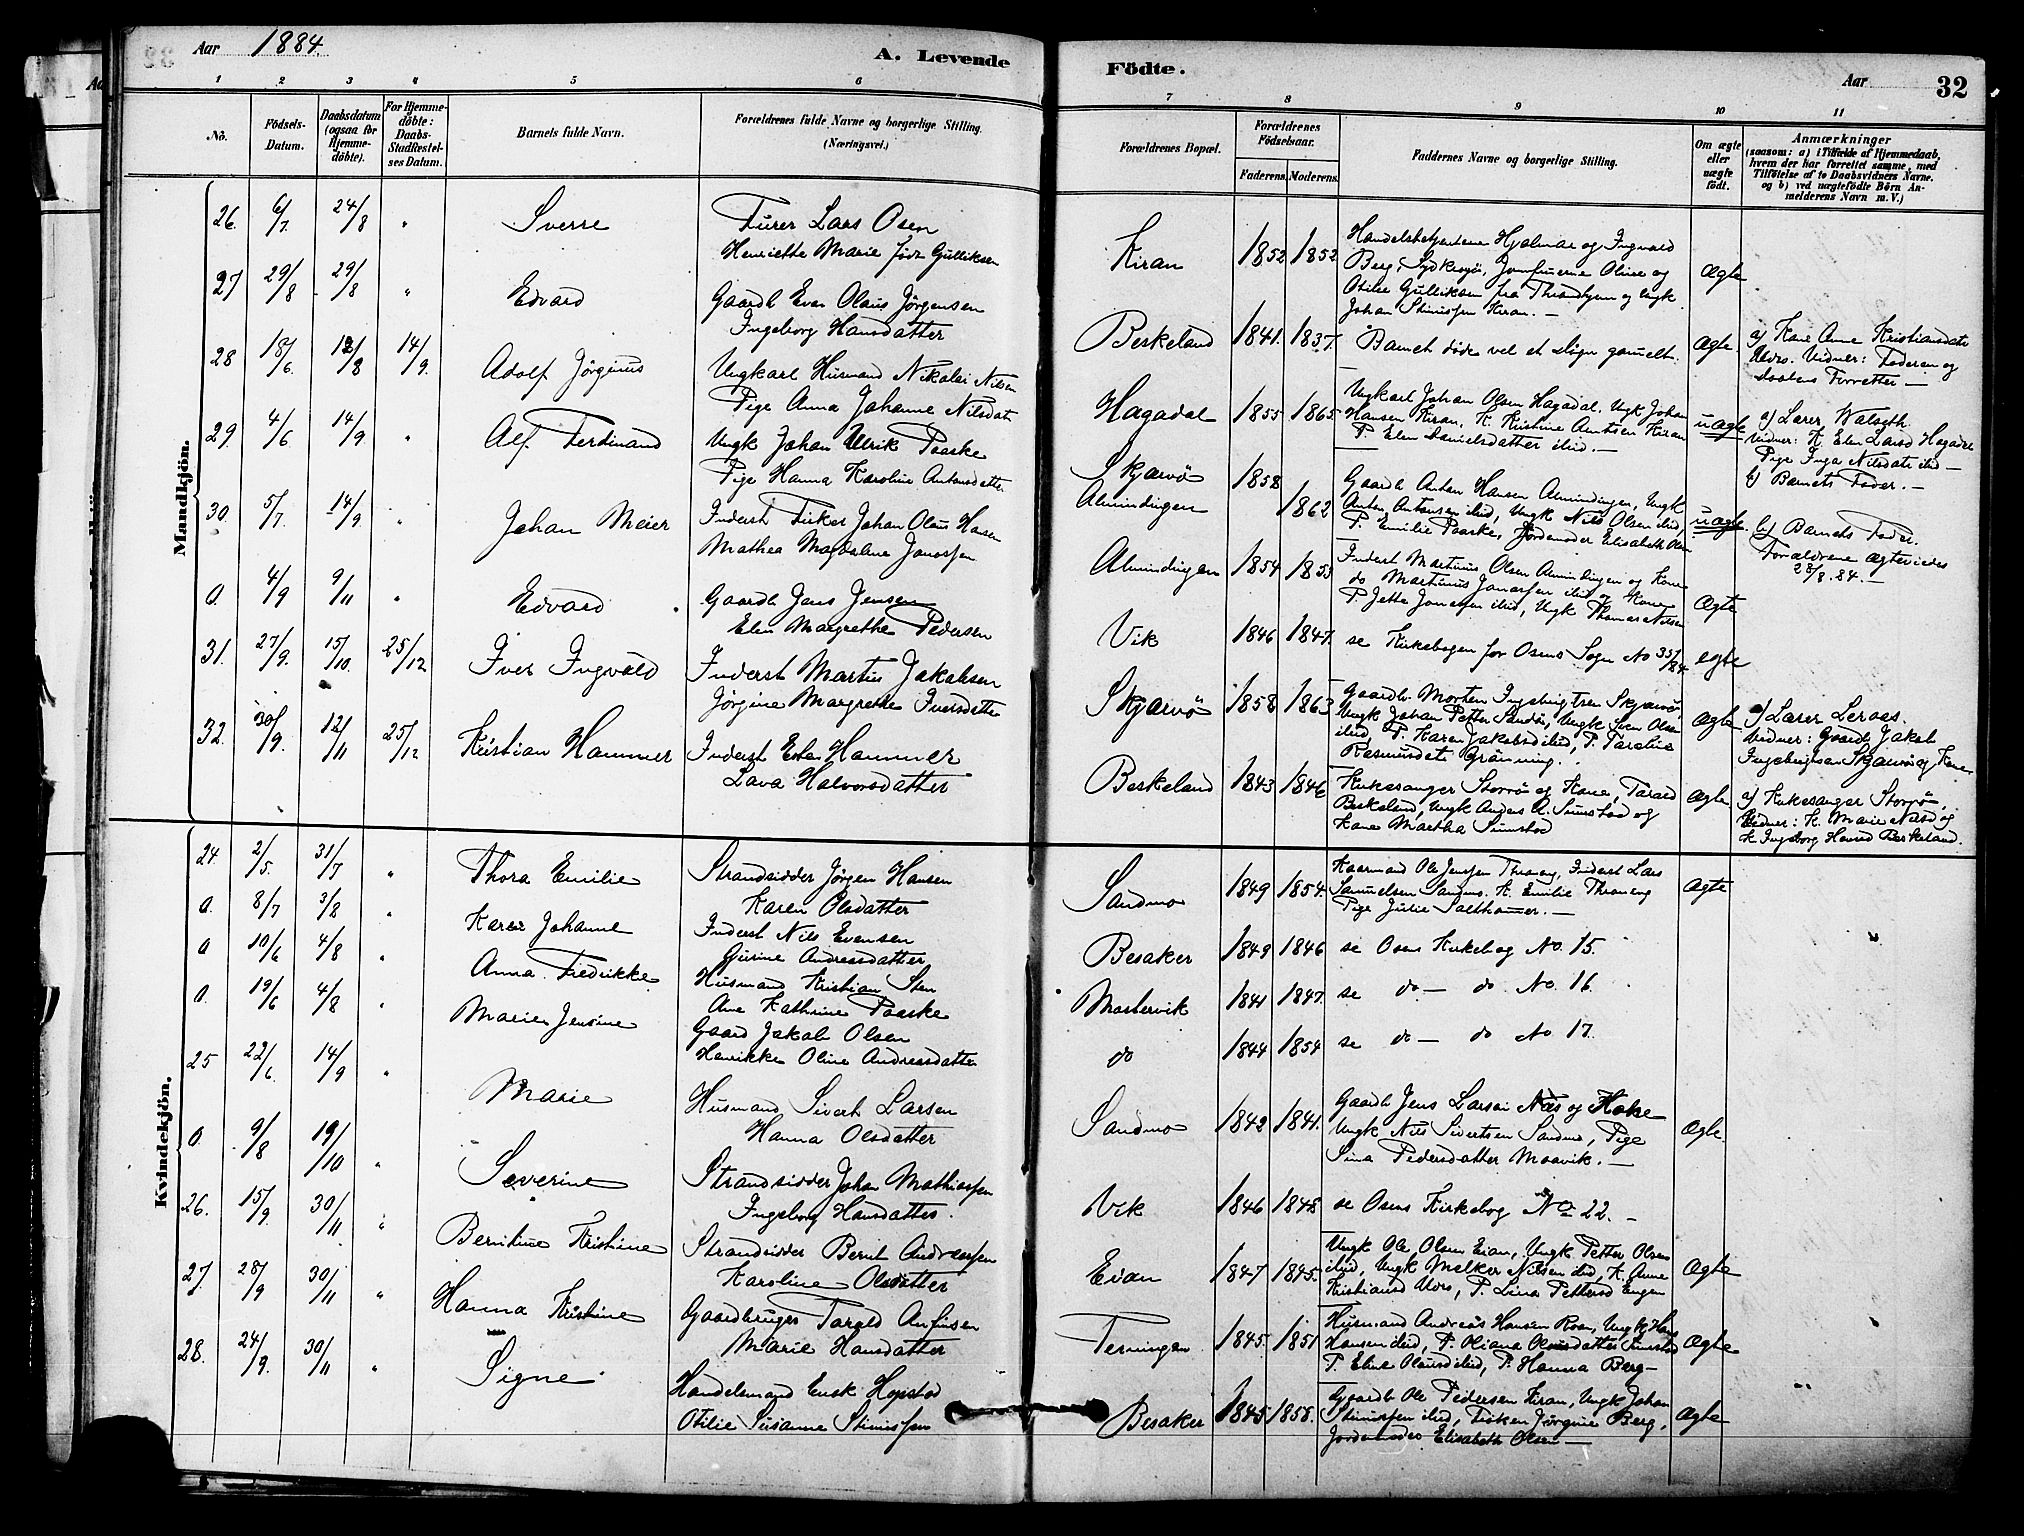 Aar 1884.
A. Levende
Födte.
Aar
32
1 2 3 4 5 6
7 8 9 10 11
No.
Födsels-
Datum.
Daabsdatum
(ogsaa for
Hjemme-
döbte).
For Hjemme-
döbte:
Daabs-
Stadfæstel-
ses Datum.
Barnets fulde Navn.
Forældrenes fulde Navne og borgerlige Stilling.
(Næringsvei.)
Forældrenes Bopæl.
Forældrenes
Födselsaar.
Faderens. Moderens.
Faddernes Navne og borgerlige Stilling.
Om ægte
eller
uægte
födt.
Anmærkninger
(saasom: a) i Tilfælde af Hjemmedaab,
hvem der har forrettet samme, med
Tilföielse af to Daabsvidners Navne.
og b) ved uægtefödte Börn An-
melderens Navn m. V.)
Mandkjön.
26. 6/7. 24/8 " Sverre
Furer Lars Osen
Henriette Marie født Gulliksen
Kiran 1852 1852
Handelsbetjentene Hjalmar og Ingvald
Berg, Sydkrogø, Jomfruerne Oline og
Otilie Gulliksen fra Throndhjem og Ungk.
Johan Stinussen Kiran. —
Ægte
27 29/8 29/8 " Edvard
Gaardb Even Olaus Jørgensen
Ingeborg Hansdatter
Beskeland 1841. 1837.
Barnet døde vel et døgn gammelt.
Ægte.
a) Kone Anne Kristiansdatr
Vors. Vidner: Faderen og
Daabens Forretter —
28 18/6. 12/8 14/9. Adolf Jørginus
Ungkarl Husmand Nikolai Nilsen
Pige Anna Johanne Nilsdatr
Hagadal 1855 1865
Ungkarl Johan Olsen Hagadal. Ungk Johan
Hansen Kiran, K. Kristine Arntsen Kiran
P. Elen Danielsdatter ibid. —
uægte
a) Lærer Walseth.
Vidner: K. Elen Larsd Hagadal
Pige Inga Nilsdatr ibid —
b) Barnets Fader. —
29. 4/6 14/9. " Alf Ferdinand
Ungk Johan Ulrik Paaske
Pige Hanna Karoline Antonsdatter
Skjærvø 1858
Almindingen 1862
Gaardb Anton Hansen Almindingen, Ungk
Anton Antonsen ibid, Ungk Nils Olsen ibid
P. Emilie Paaske, Jordemoder Elisabeth Olsen
uægte
b) Barnets Fader.
Forældrene ægteviedes
28/8. 84. —
30. 5/7. 14/9. " Johan Meier
Inderst Fisker Johan Olaus Hansen
Mathea Magdalene Janassen
Almindingen 1854 1855
Inderst Martinus Olsen Almindingen og Kone
do Martinus Janassen ibid og Kone
P. Jette Janassen ibid, Ungk Thomas Nilsen
Ægte
0. 4/9 9/11 " Edvard
Gaardb Jens Jensen
Elen Margrethe Pedersen
Vik 1846 1847.
se Kirkebogen for Osens Sogn No 35/84.
ægte
31. 27/9. 15/10. 25/12 Iver Ingvald
Inderst Martin Jakobsen
Jørgine Margrethe Iversdatter
Skjærvø 1858 1863
Gaardb. Morten Ingebrigtsen Skjærvø
Ungk Johan Petter Sandø, Ungk Sven Olsen
ibid, P. Karen Jakobsd ibid, P. Pareline
Rasmusdatr Grønning.
Ægte
a) Lærer Leraas.
Vidner: Gaardb Jakob
Ingebrigtsen Skjærvø og Kone
32. 30/9. 12/11 25/12 Kristian Hammer
Inderst Hammer
Lava Halvorsdatter
Beskeland 1843 1846
Kirkesanger Storrø og Kone, Tarald
Beskeland, Ungk Anders A. Sumstad og
Kone Martha Sumstad
Ægte
a) Kirkesanger Storrø.
Vidner: K. Marie Nilsd og
K. Ingeborg Hansd Beskeland.
Kvindekjön.
24 2/5. 31/7 " Thora Emilie
Strandsidder Jørgen Hansen
Karen Olsdatter
Sandmo 1849 1854.
Kaarmand Ole Jenssen Thranøy, Inderst Lars
Samuelsen Sandmo. K Emilie Thranøy
Pige Julie Salthammer. —
Ægte
0. 8/7 3/8 " Karen Johanne
Inderst Nils Evensen
Gurine Andreasdatter
Besaker 1849 1846
se Osens Kirkebog No. 15.
0 10/6 4/8 " Anna Fredrikke
Husmand Kristian Sten
Ane Kathrine Paaske
Mastervik 1841 1847.
se do — do No. 16.
0. 19/6 4/8 " Marie Jensine
Gaard Jakob Olsen
Henrikke Oline Andreasdatter
do 1844 1854
se do — do No 17.
25 22/6. 14/9 " Marie
Husmand Sivert Larsen
Hanna Olsdatter
Sandmo 1842 1841.
Gaardb Jens Larsen Næs og Kone
Ungk Nils Sivertsen Sandmo, Pige
Sina Pedersdatter Maavik. —
Ægte.
0. 9/8 19/10 " Severine
Strandsidder Johan Mathiassen
Ingeborg Hansdatter.
Vik 1846 1848
se Osens Kirkebog No 22. —
26. 15/9. 30/11 " Berntine Kristine
Strandsidder Bernt Andreassen
Karoline Olsdatter
Eian 1847 1845.
Ungk Ole Olsen Eian, Ungk Petter Olsen
ibid, Ungk Melker Nilsen ibid, K. Anne
Kristiansd Vors, P. Lina Pettersd Engen
Ægte
27. 28/9 30/11 " Hanna Kristine
Gaardbruger Tarald Anfinsen
Marie Hansdatter
Terningen 1845. 1851
Husmand Andreas Hansen Roan, Ungk Hans
Hansen ibid, P. Oliana Olausdatter Sumstad
P. Eline Olausd ibid, P. Hanna Berg—
Ægte
28. 24/9. 30/11 " Signe
Handelsmand Enok Hopstad
Otilie Susanne Stinussen
Besaker 1845 1858.
Gaardb Ole Pedersen Kiran, Ungk Johan
Stinussen ibid, Frøken Jørgine Berg,
Jordemoder Elisabeth Olsen —
Ægte